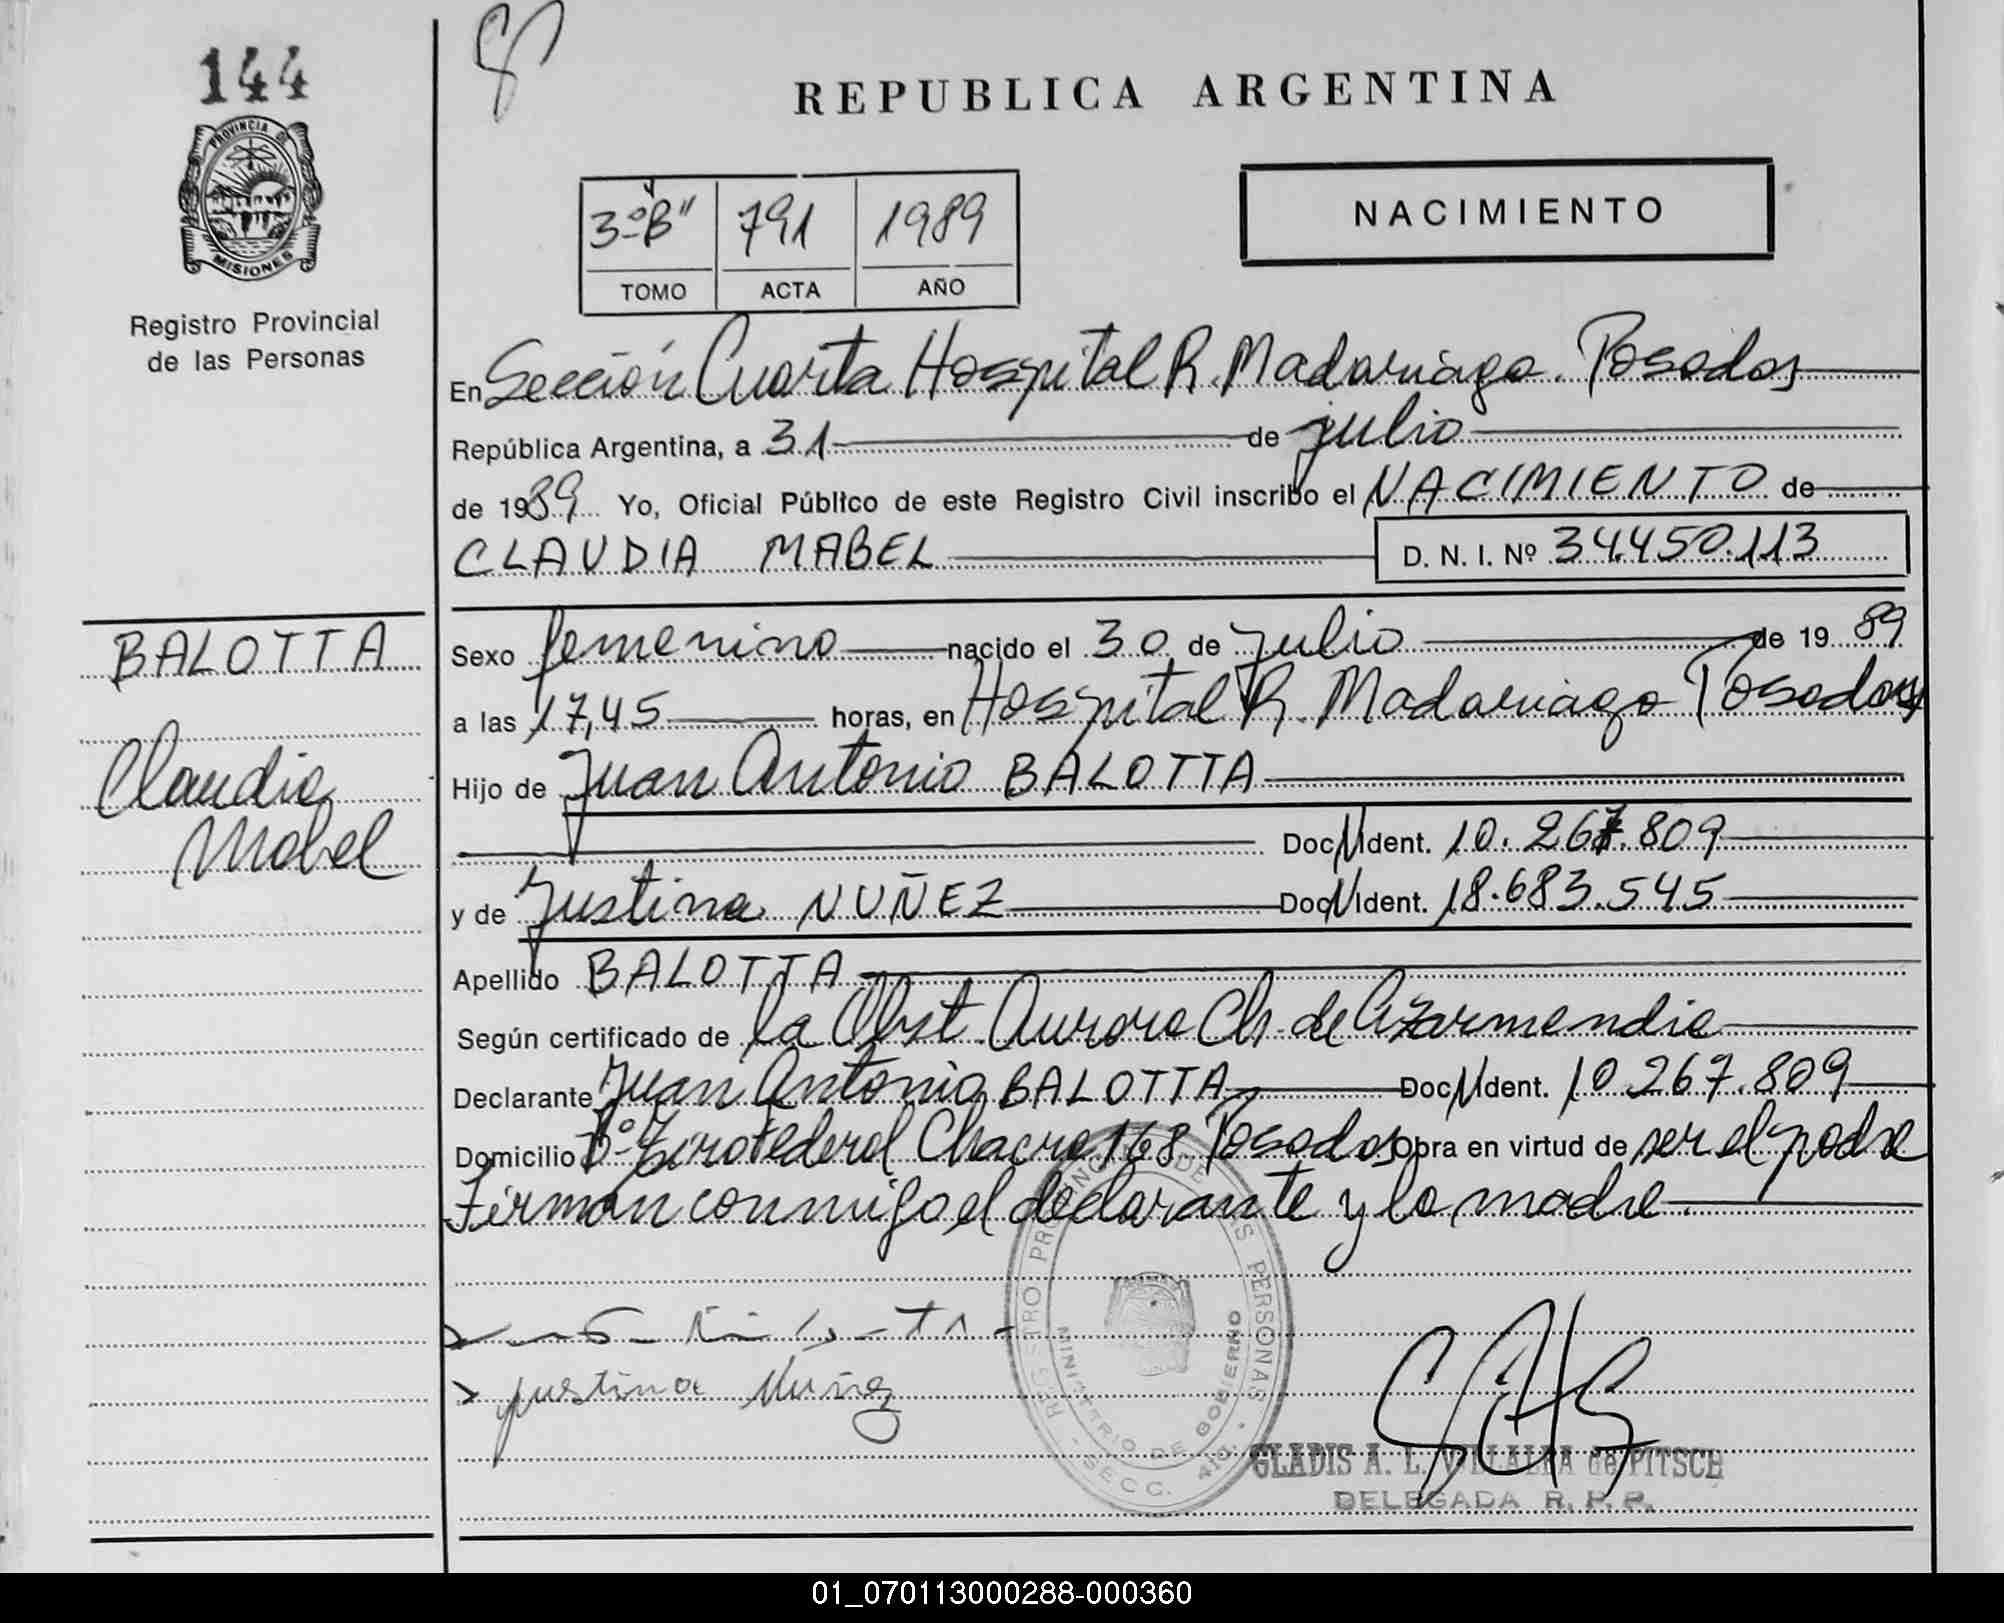 144
PROVINCIA DE
MISIONES
Registro Provincial
de las Personas
REPUBLICA ARGENTINA
3º "B" 791 1989
TOMO ACTA AÑO
NACIMIENTO
En Sección Cuarta Hospital R. Madariaga. Posadas
República Argentina, a 31 de julio
de 1989 Yo, Oficial Público de este Registro Civil inscribo el NACIMIENTO de
CLAUDIA MABEL D. N. I. Nº 34.450.113
BALOTTA
Claudia
Mabel
Sexo femenino nacido el 30 de julio de 1989
a las 17,45 horas, en Hospital R. Madariaga Posadas
Hijo de Juan Antonio BALOTTA
Doc. N. Ident. 10.267.809
y de Justina NUÑEZ Doc. N. Ident. 18.683.545
Apellido BALOTTA
Según certificado de la Obst. Aurora Ch. de Azarmendia
Declarante Juan Antonio BALOTTA Doc. N. Ident. 10.267.809
Domicilio Bº Federal Chacra 168 Posadas Obra en virtud de ser el padre
Firman conmigo el declarante y la madre.
Justina Nuñez
REGISTRO PROVINCIAL DE LAS PERSONAS
MINISTERIO DE GOBIERNO
SECC. 4ta.
GLADIS A. L. VILLALBA de PITSCH
DELEGADA R. P. P.
01_070113000288-000360